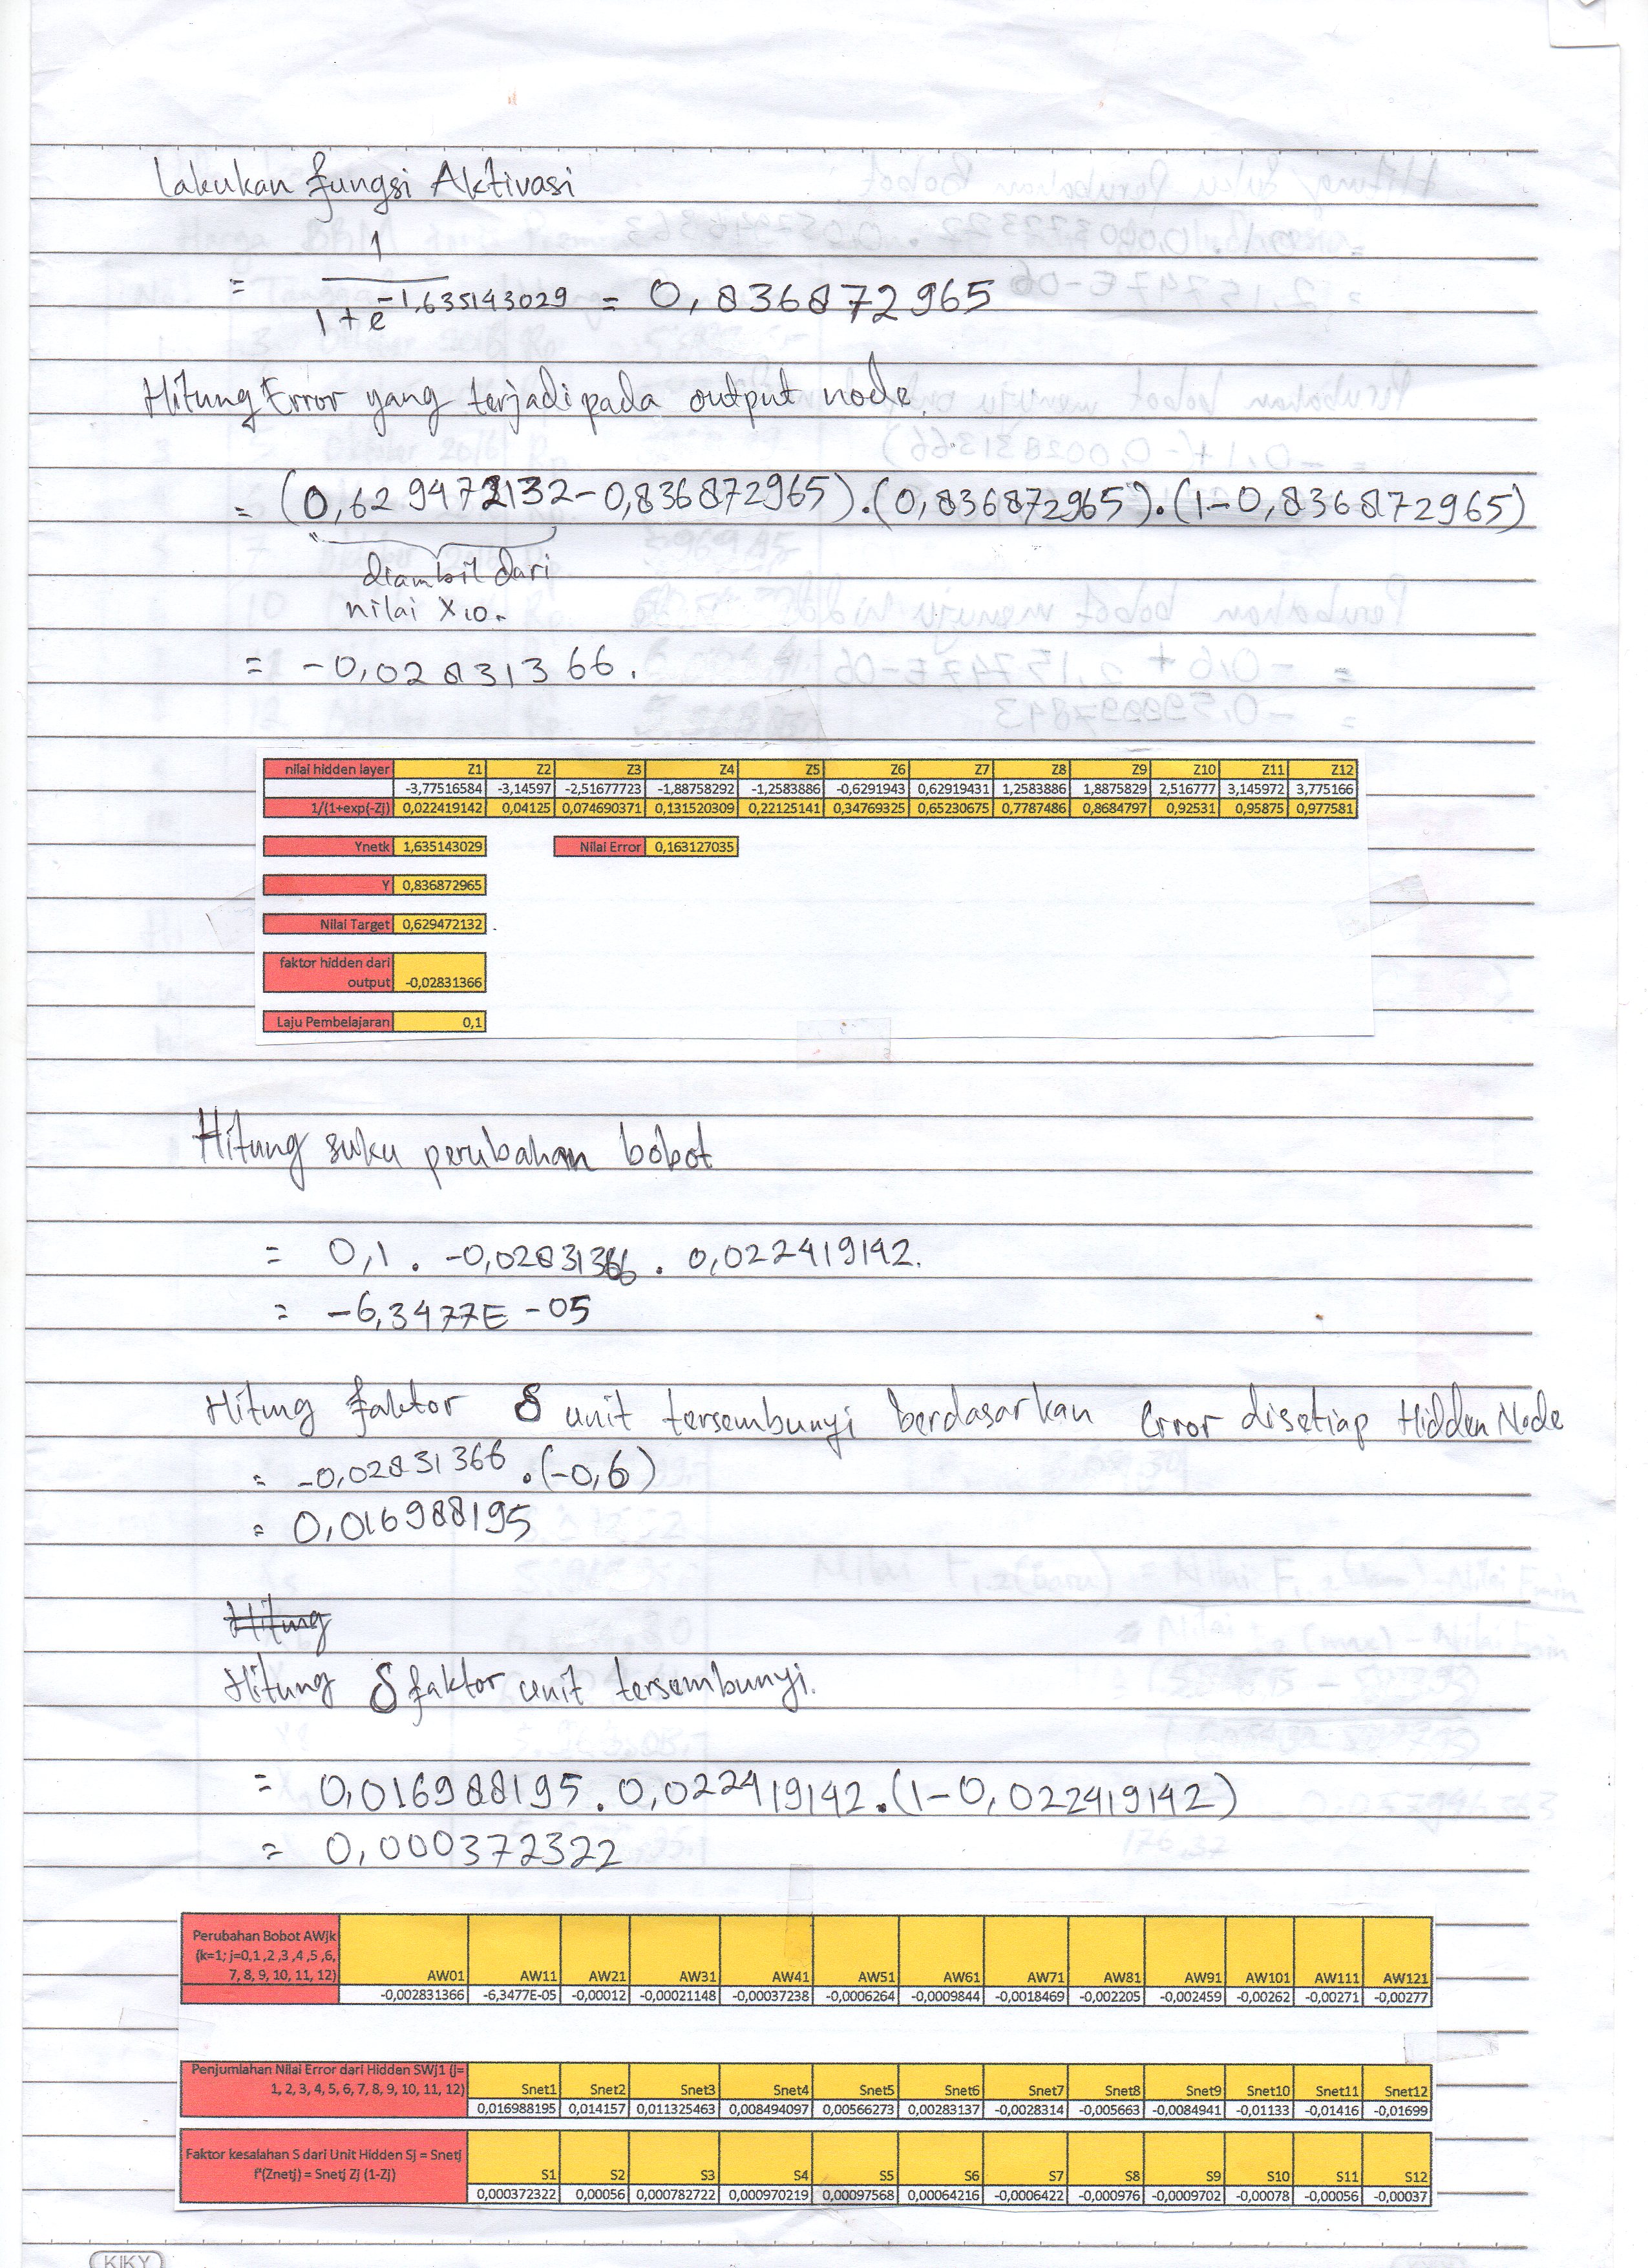 Lakukan fungsi Aktivasi
1
= 1 + e^-1,635143029 = 0,836872965
Hitung Error yang terjadi pada output node.
= (0,629472132 - 0,836872965).(0,836872965).(1-0,836872965)
diambil dari
nilai X10.
= -0,02831366.
nilai hidden layer Z1 Z2 Z3 Z4 Z5 Z6 Z7 Z8 Z9 Z10 Z11 Z12
-3,77516584 -3,14597 -2,51677723 -1,88758292 -1,2583886 -0,6291943 0,62919431 1,2583886 1,8875829 2,516777 3,145972 3,775166
1/(1+exp(-Zj) 0,022419142 0,04125 0,074690371 0,131520309 0,22125141 0,34769325 0,65230675 0,7787486 0,8684797 0,92531 0,95875 0,977581
Ynetk 1,635143029 Nilai Error 0,163127035
Y 0,836872965
Nilai Target 0,629472132
faktor hidden dari
output -0,02831366
Laju Pembelajaran 0,1
Hitung suku perubahan bobot
= 0,1 . -0,02831366 . 0,022419142.
= -6,3477E-05
Hitung faktor δ unit tersembunyi berdasarkan Error disetiap Hidden Node
= -0,02831366 .(-0,6)
= 0,016988195
Hitung
Hitung δ faktor unit tersembunyi.
= 0,016988195.0,022419142.(1-0,022419142)
= 0,000372322
Perubahan Bobot AWjk
(k=1; j=0,1 ,2 ,3 ,4 ,5 ,6,
7, 8, 9, 10, 11, 12) AW01 AW11 AW21 AW31 AW41 AW51 AW61 AW71 AW81 AW91 AW101 AW111 AW121
-0,002831366 -6,3477E-05 -0,00012 -0,00021148 -0,00037238 -0,0006264 -0,0009844 -0,0018469 -0,002205 -0,002459 -0,00262 -0,00271 -0,00277
Penjumlahan Nilai Error dari Hidden SWj1 (j=
1, 2, 3, 4, 5, 6, 7, 8, 9, 10, 11, 12) Snet1 Snet2 Snet3 Snet4 Snet5 Snet6 Snet7 Snet8 Snet9 Snet10 Snet11 Snet12
0,016988195 0,014157 0,011325463 0,008494097 0,00566273 0,00283137 -0,0028314 -0,005663 -0,0084941 -0,01133 -0,01416 -0,01699
Faktor kesalahan S dari Unit Hidden Sj = Snetj
f'(Znetj) = Snetj Zj (1-Zj) S1 S2 S3 S4 S5 S6 S7 S8 S9 S10 S11 S12
0,000372322 0,00056 0,000782722 0,000970219 0,00097568 0,00064216 -0,0006422 -0,000976 -0,0009702 -0,00078 -0,00056 -0,00037
KIKY